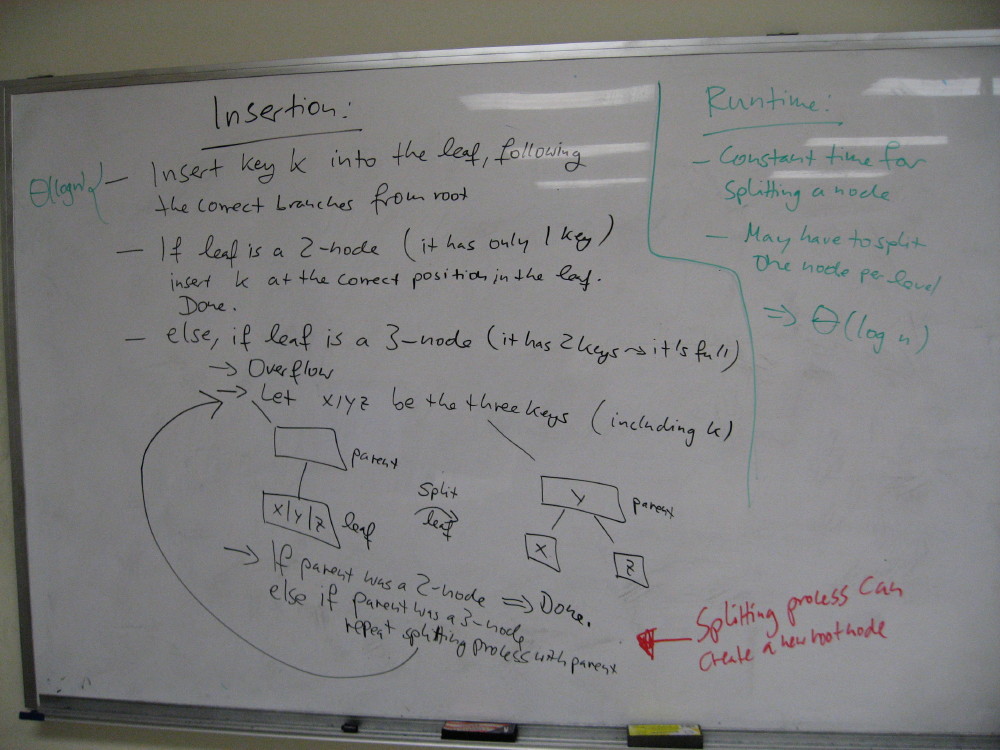 Insertion:
Θ(log n) { – Insert key k into the leaf, following
the correct branches from root
– If leaf is a 2-node (it has only 1 key)
insert k at the correct position in the leaf.
Done.
– else, if leaf is a 3-node (it has 2 keys ⇝ it's full)
→ Overflow
→ Let x|y|z be the three keys (including k)
parent
x|y|z leaf
Split
leaf
y parent
x
z
→ If parent was a 2-node ⇒ Done.
else if parent was a 3-node
repeat splitting process with parent
Runtime:
– Constant time for
splitting a node
– May have to split
one node per level
⇒ Θ(log n)
← Splitting process can
create a new root node